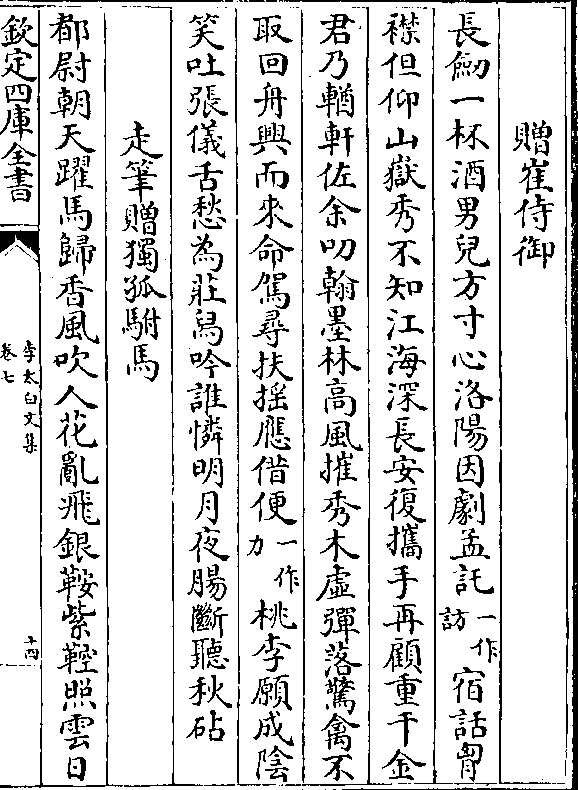 贈崔侍御
長劒一杯酒男兒方寸心洛陽因劇孟託一作訪宿話胷
襟但仰山嶽秀不知江海深長安復攜手再顧重千金
君乃輶軒佐余叨翰墨林高風摧秀木虛彈落驚禽不
取回舟興而來命駕尋扶揺應借便一作力桃李願成陰
笑吐張儀舌愁為莊舄吟誰憐明月夜腸斷聽秋砧
走筆贈獨孤駙馬
都尉朝天躍馬歸香風吹人花亂飛銀鞍紫鞚照雲日
欽定四庫全書
李太白文集
卷七
十四